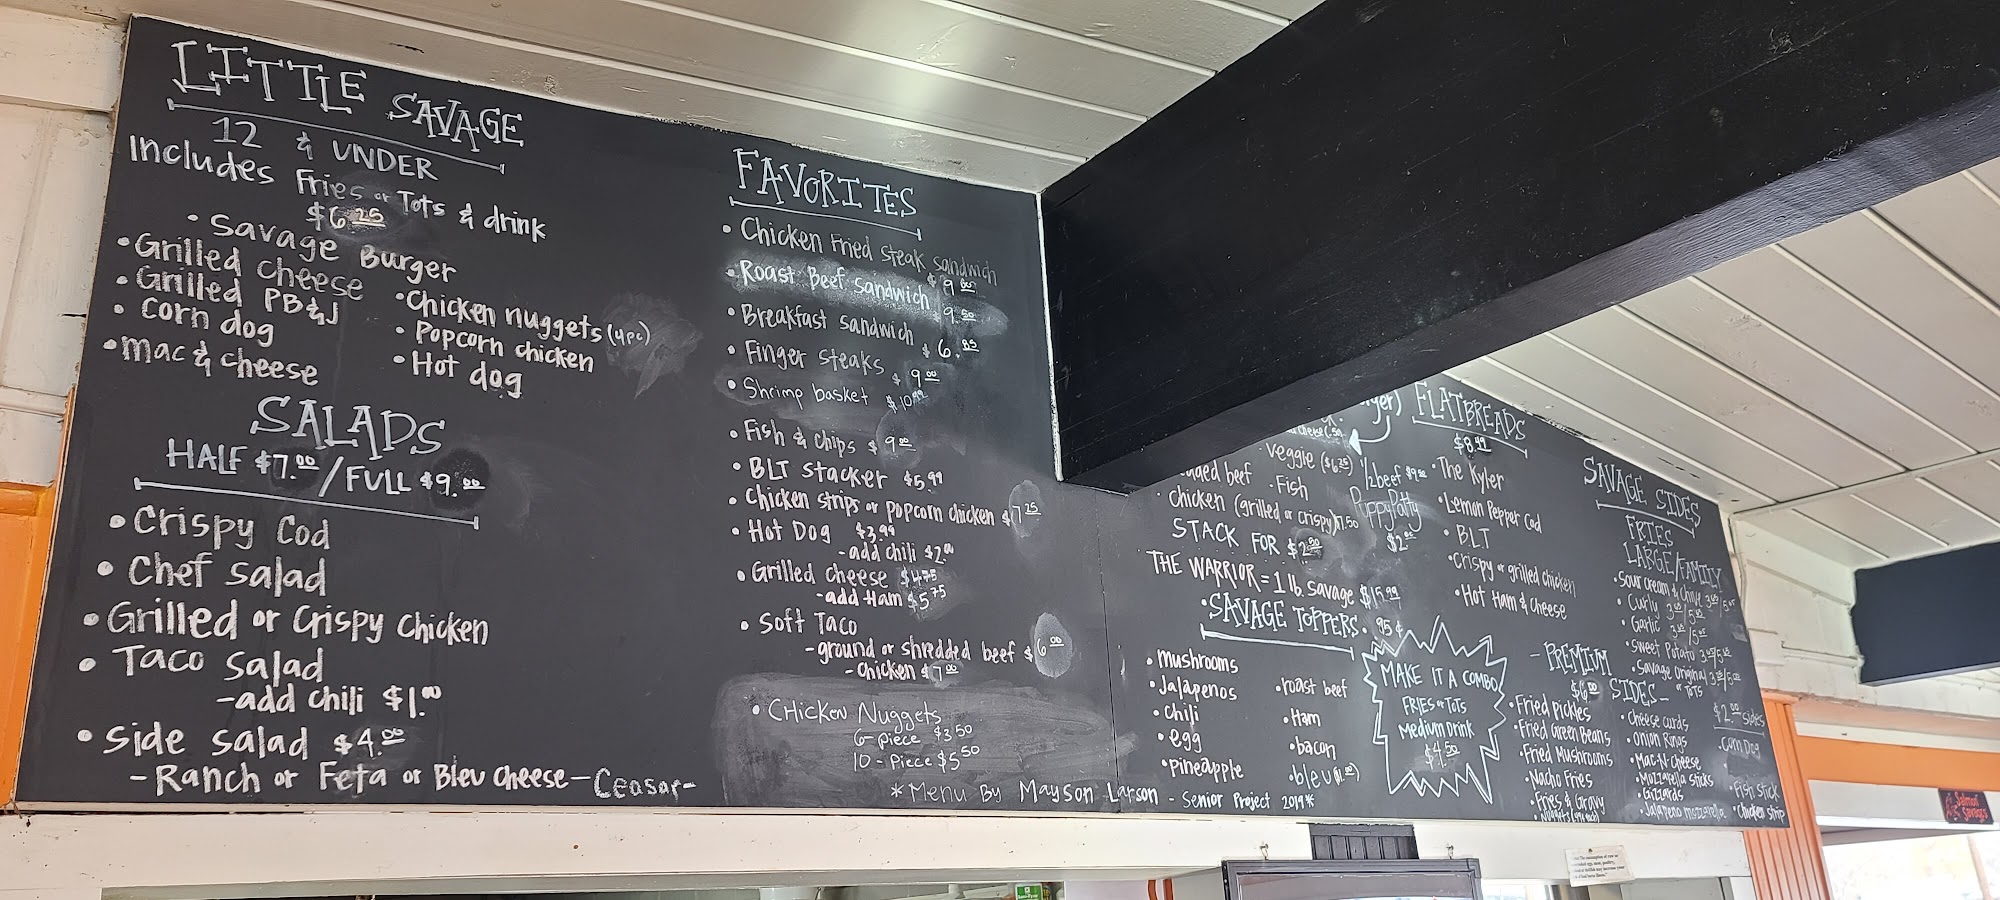 LITTLE SAVAGE
12 & UNDER
Includes Fries or Tots & drink
$6.25
• Savage Burger
• Grilled cheese
• Grilled PB&J
• Corn dog
• Mac & cheese
• Chicken nuggets (4pc)
• Popcorn chicken
• Hot dog
SALADS
HALF $7.00 / FULL $9.00
• Crispy Cod
• Chef salad
• Grilled or Crispy chicken
• Taco salad
- add chili $1.00
• Side salad $4.00
- Ranch or Feta or Bleu cheese - Ceasar -
FAVORITES
• Chicken Fried steak sandwich
$9.00
• Roast Beef sandwich $9.50
• Breakfast sandwich $6.85
• Finger steaks $9.00
• Shrimp basket $10.99
• Fish & chips $9.00
• BLT stacker $5.99
• Chicken strips or popcorn chicken $7.25
• Hot Dog $3.99
- add chili $2.00
• Grilled cheese $4.75
- add Ham $5.75
• Soft Taco
- ground or shredded beef $6.00
- chicken $7.00
• CHicken Nuggets
6 - piece $3.50
10 - Piece $5.50
* Menu By Mayson Larson - Senior Project 2019 *
• Veggie ($6.25)
beef • Fish
1/2 beef
• Chicken (grilled or crispy) $7.50
PuppyPatty
STACK FOR
THE WARRIOR = 1 lb. savage $15.99
• SAVAGE TOPPERS • 95¢
• Mushrooms
• Jalapenos
• Chili
• egg
• Pineapple
• roast beef
• Ham
• bacon
• bleu
MAKE IT A COMBO
FRIES or TOTS
Medium Drink
$4.50
FLATBREADS
$8.99
• The Kyler
• Lemon Pepper Cod
• BLT
• Crispy or grilled chicken
• Hot Ham & Cheese
SAVAGE SIDES
FRIES
LARGE/FAMILY
• Sour cream & chive
• Curly
• Garlic
• Sweet Potato
• Savage Original
or TOTS
- PREMIUM
SIDES -
$6.00
• Fried pickles
• Fried Green Beans
• Fried Mushrooms
• Nacho Fries
• Fries & Gravy
• Cheese curds
• Onion Rings
• Mac N Cheese
• Mozzarella sticks
• Gizzards
• Jalapeno mozzarella
$2.00 sides
• Corn Dog
• Fish stick
• Chicken strip
Salmon
Savages